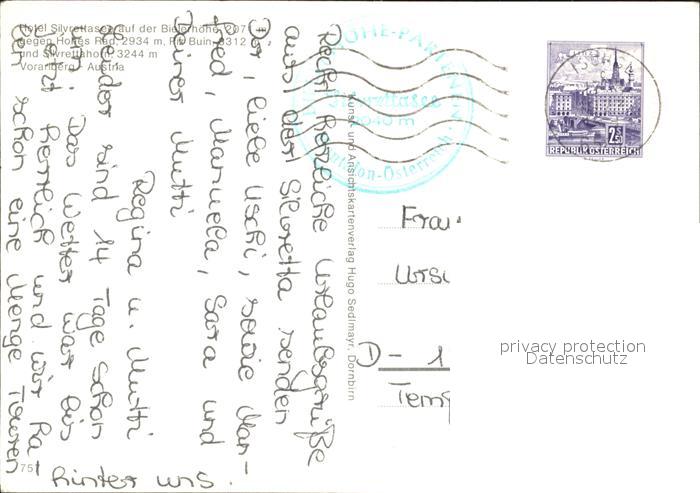 Hotel Silvrettasee auf der Bielerhöhe, 207
gegen Hohes Rad, 2934 m, Piz Buin 3312
und Silvrettahorn 3244 m
Vorarlberg Austria
Recht herzliche Urlaubsgrüße
aus der Silvretta senden
Dir, liebe Uschi, sowie Man-
fred, Manuela, Sara und
Deiner Mutti
Regina u. Mutti
Leider sind 14 Tage schon
um. Das Wetter war bis
jetzt herrlich und wir ha-
ben schon eine Menge Touren
hinter uns.
75
Kunst- und Ansichtskartenverlag Hugo Sedlmayr, Dornbirn
HÖHE-PARTENEN
Silvrettasee
2040 m
Montafon-Österreich
2.50
REPUBLIK ÖSTERREICH
Frau
Ursu
D-1
Temp
privacy protection
Datenschutz